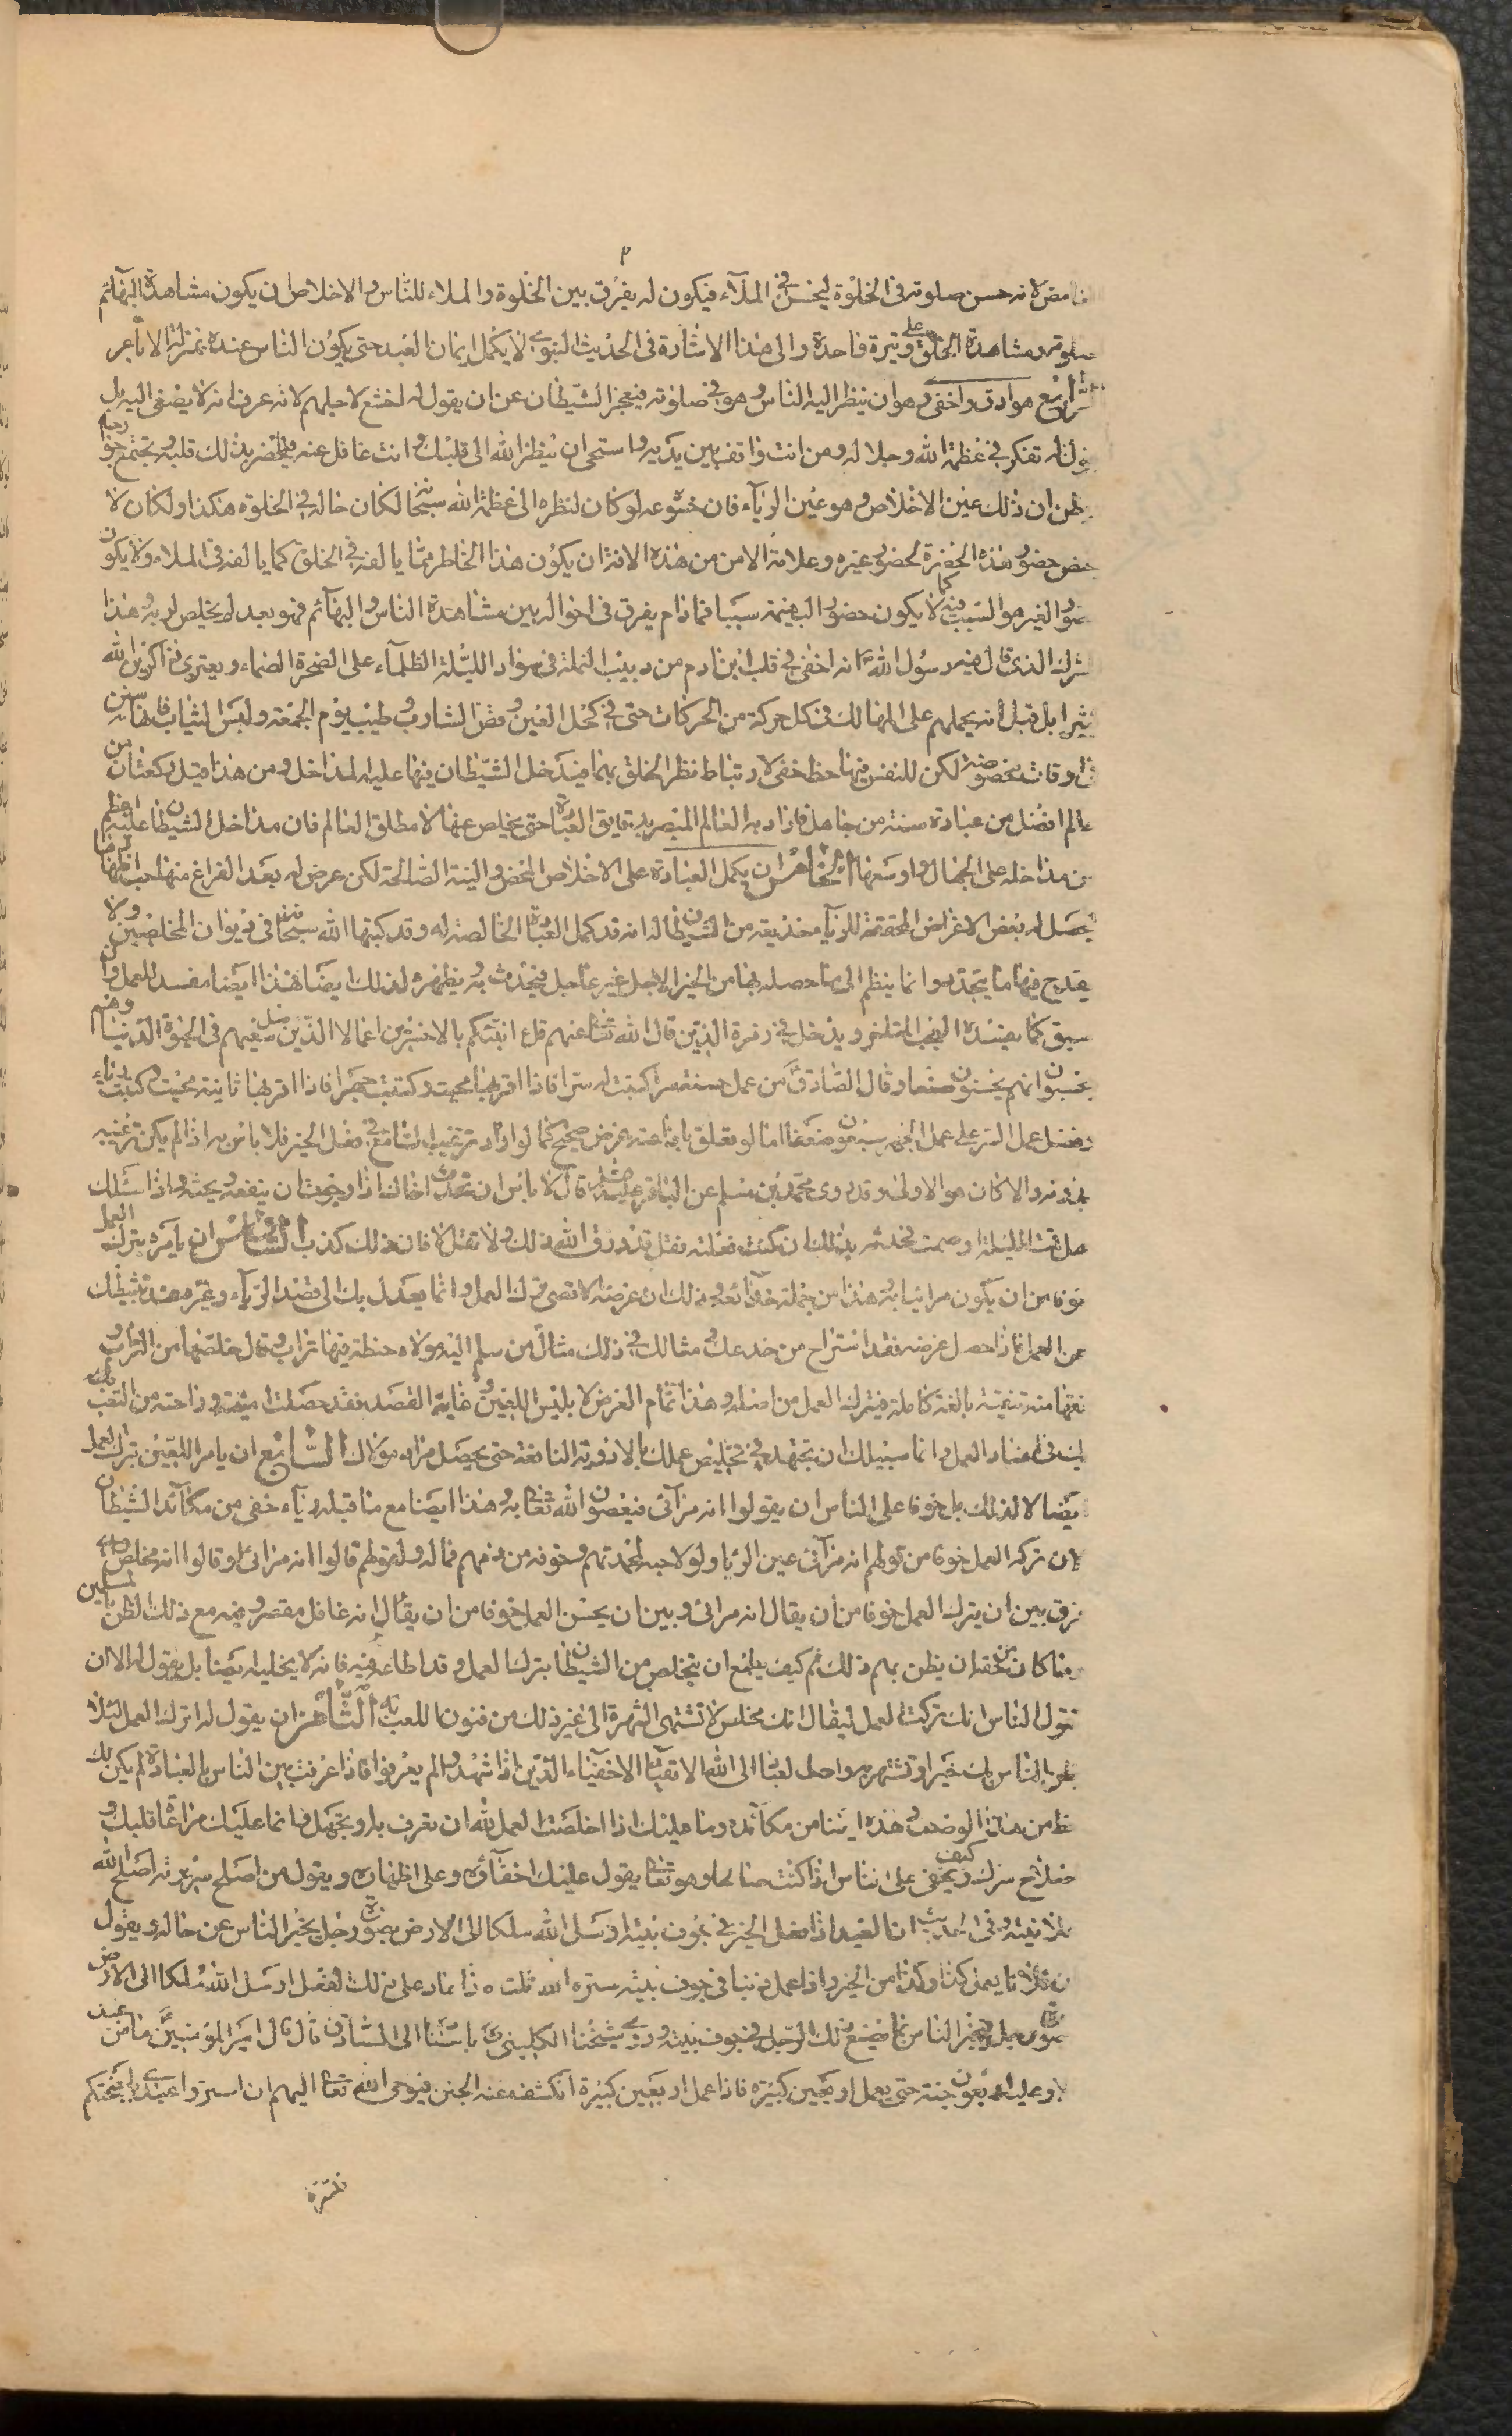 ٢
لانه حسن صلوته فى الخلوة ليحسن فى الملآء فيكون له يفرق بين الخلوة والملاء للنّاس والاخلاص ان يكون مشاهدة البهآئم
صلوته ومشاهدة الخلق على وتيرة واحدة والى هذا الاشارة فى الحديث النبوى لا يكمل ايمان العبد حتى يكون الناس عنده بمنزلة الاباعر
الرّابع هو ادق واخفى وهو ان ينظر اليه الناس وهو فى صلوته فيعجز الشيطان عن ان يقول له اخشع لاجلهم لانه عرف انه لا يصغى اليه بل
يقول له تفكر فى عظمة الله وجلاله ومن انت واقف بين يديه واستحى ان ينظر الله الى قلبك وانت غافل عنه فيحضر بذلك قلبه ويجتمع جوارحه
يظن ان ذلك عين الاخلاص وهو عين الريآء فان خشوعه لو كان لنظره الى عظمة الله سبحانه لكان حاله فى الخلوة هكذا ولكان لا
حضور هذه الخطرة لحضور غيره وعلامة الامن من هذه الافة ان يكون هذا الخاطر مما يالفه فى الخلوة كما يالفه فى الملاء ولا يكون
حضور الغير هو السبب فيه كما لا يكون حضور البهيمة سببا فمادام يفرق فى احواله بين مشاهدة الناس والبهآئم فهو بعد لم يخلص له وهذا
الشرك الذى قال فيه رسول الله ص انه اخفى فى قلب ابن ادم من دبيب النملة فى سواد الليلة الظلمآء على الصخرة الصماء ويعترى ذاكرين الله
كثيرا بل قيل انه يحملهم على المهالك فى كل حركة من الحركات حتى فى كحل العين وقص الشارب وطيب يوم الجمعة ولبس الثياب فانها سنن
فى اوقات مخصوصة لكن للنفس فيها حظ خفى لارتباط نظر الخلق بها فيدخل الشيطان فيها عليه المداخل ومن هذا قيل ركعتان من
عالم افضل من عبادة سنة من جاهل واراد به العالم المتبصر بدقايق العبادة حتى يخلص عنها لا مطلق العالم فان مداخل الشيطان عليه اعظم
من مداخله على الجهال واوسعها الخامس ان يكمل العبادة على الاخلاص المحض والنية الصالحة لكن عرض له بعد الفراغ منها حب اظهارها
ليحصل له بعض الاغراض المحققة للريآء خديعة من الشيطان له انه قد كمل العبادة الخالصة له وقد كتبها الله سبحانه فى ديوان المخلصين ولا
يقدح فيها ما يتجدد وانما ينظم الى ما حصله بها من الخير الاجل خير عاجل فيحدث به ويظهره لذلك ايضا فهذا ايضا مفسد للعمل وان
سبق كما يفسده العجب المتاخر ويدخل فى زمرة الذين قال الله تعالى عنهم قل هل انبئكم بالاخسرين اعمالا الذين ضل سعيهم فى الحيوة الدنيا وهم
يحسبون انهم يحسنون صنعا وقال الصّادق ع من عمل حسنة سرا كتبت له سرا فاذا اقر بها محيت وكتبت جهرا فاذا اقر بها ثانية محيت وكتبت رياء
وفضل عمل السر على عمل الجهر سبعون ضعفا اما لو تعلق باذاعته غرض صحيح كما لو اراد ترغيب السّامع فى فعل الخير فلا باس به اذا لم يكن ترغيبه
بدونه والا كان هو الاولى وقد روى محمد بن مسلم عن الباقر عليه السلام قال لا باس ان تحدث اخاك اذا رجوت ان ينفعه ويحثه واذا سئلك
هل قمت الليلة او صمت فحدثه بذلك ان كنت فعلته فقل قد رزق الله ذلك ولا تقل لا فان ذلك كذب السّادس ان يامره بترك العمل
خوفا من ان يكون مرائيا به وهذا من جملة خدآئعه وذلك ان غرضه الاقصى ترك العمل وانما يعدل بك الى قصد الريآء وغيره عند تثبيطك
عن العمل فاذا حصل غرضه فقد استراح من خدعك ومثالك فى ذلك مثال من سلم اليه مولاه حنطة فيها تراب وقال خلصها من التراب
نقها منه تنقية بالغة كاملة فيترك العمل من اصله وهذا تمام الغرض لابليس اللعين وغاية القصد فقد حصلت امنيته وراحته من التعب
فى افساد العمل وانما سبيلك ان تجتهد فى تخليص عملك بالادوية النافعة حتى يحصل مراد مولاك السّابع ان يامر اللعين بترك العمل
ايضا لا لذلك بل خوفا على الناس ان يقولوا انه مرآئى فيعصون الله تعالى به وهذا ايضا مع ما قبله ريآء خفى من مكآئد الشيطان
لان تركه العمل خوفا من قولهم انه مرآئى عين الريا ولولا حبه لمحمدتهم وخوفه من ذمهم فماله ولقولهم قالوا انه مرائى او قالوا انه مخلص واى
فرق بين ان يترك العمل خوفا من ان يقال انه مرائى وبين ان يحسن العمل خوفا من ان يقال انه غافل مقصر وفيه مع ذلك الظن بالمسلمين
وما كان من حقه ان يظن بهم ذلك ثم كيف يطمع ان يتخلص من الشيطان بترك العمل وقد اطاعه فيه فانه لا يخليه ايضا بل يقول له الان
تقول الناس انك تركت العمل ليقال انك مخلص لا تشتهى الشهرة الى غير ذلك من فنون اللعب به الثّامن ان يقول له اترك العمل لئلا
الناس بك خيرا وتشتهر به واحب العباد الى الله الاتقياء الاخفيآء الذين اذا شهدوا لم يعرفوا فاذا عرفت بين الناس بالعبادة لم يكن لك
حظ من هذا الوصف وهذه ايضا من مكآئده وما عليك اذا اخلصت العمل لله ان تعرف به او تجهل فانما عليك مراعاة قلبك و
اصلاح سرك وكيف يخفى على الناس اذا كنت صالحا وهو تعالى يقول عليك اخفآؤه وعلى اظهاره ويقول من اصلح سريرته اصلح الله
علانيته وفى الحديث ان العبد اذا فعل الخير فى جوف بيته ارسل الله ملكا الى الارض بصورة رجل يخبر الناس عن حاله ويقول
ان فلانا يعمل كذا وكذا من الخير واذا عمل ذنبا فى جوف بيته ستره الله ثلث فاذا عاد على ذلك الفعل ارسل الله ملكا الى الارض
بصورة رجل فيخبر الناس بما يصنع ذلك الرّجل فى جوف بيته وروى شيخنا الكلينى ره باسناده الى الصّادق قال قال امير المؤمنين ع ما من عبد
الا وعليه اربعون جنة حتى يعمل اربعين كبيرة فاذا عمل اربعين كبيرة انكشفت عنه الجنن فيوحى الله تعالى اليهم ان استروا عبدى باجنحتكم
فتستره